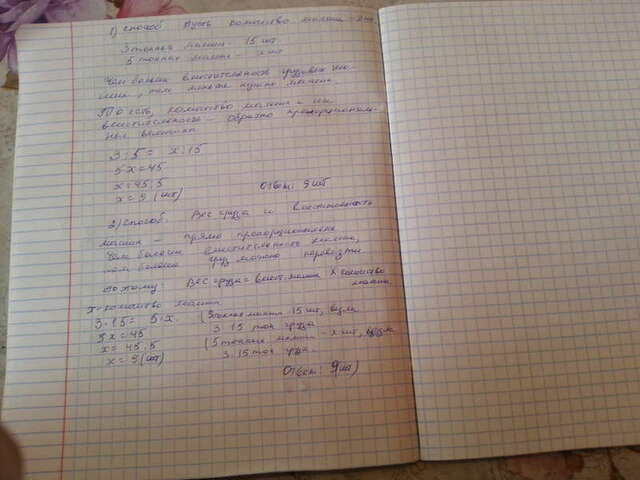 1) способ Пусть количество машин
3 тонная машина - 15 шт.
5 тонная машина - x шт
Чем больше вместительность грузовых
машин, тем меньше нужно машин
То есть, количество машин и их
вместительность - обратно пропорциональ-
ные величины
3:5 = x:15
5x=45
x=45:5
x=9 (шт) Ответ: 9 шт
2) способ. Вес груза и вместительность
машин - прямо пропорциональны.
Чем больше вместительность машин,
тем больше груз можно перевезти
Поэтому: Вес груза = вмест. машин x количество
машин
X - количество машин
3·15 = 5·x. (3 тонная машин 15 шт,
3·15 тон груза
5x=45
x=45:5 (5 тонная машин - x шт,
3·15 тон груза.
x=9 (шт)
Ответ: 9 шт)